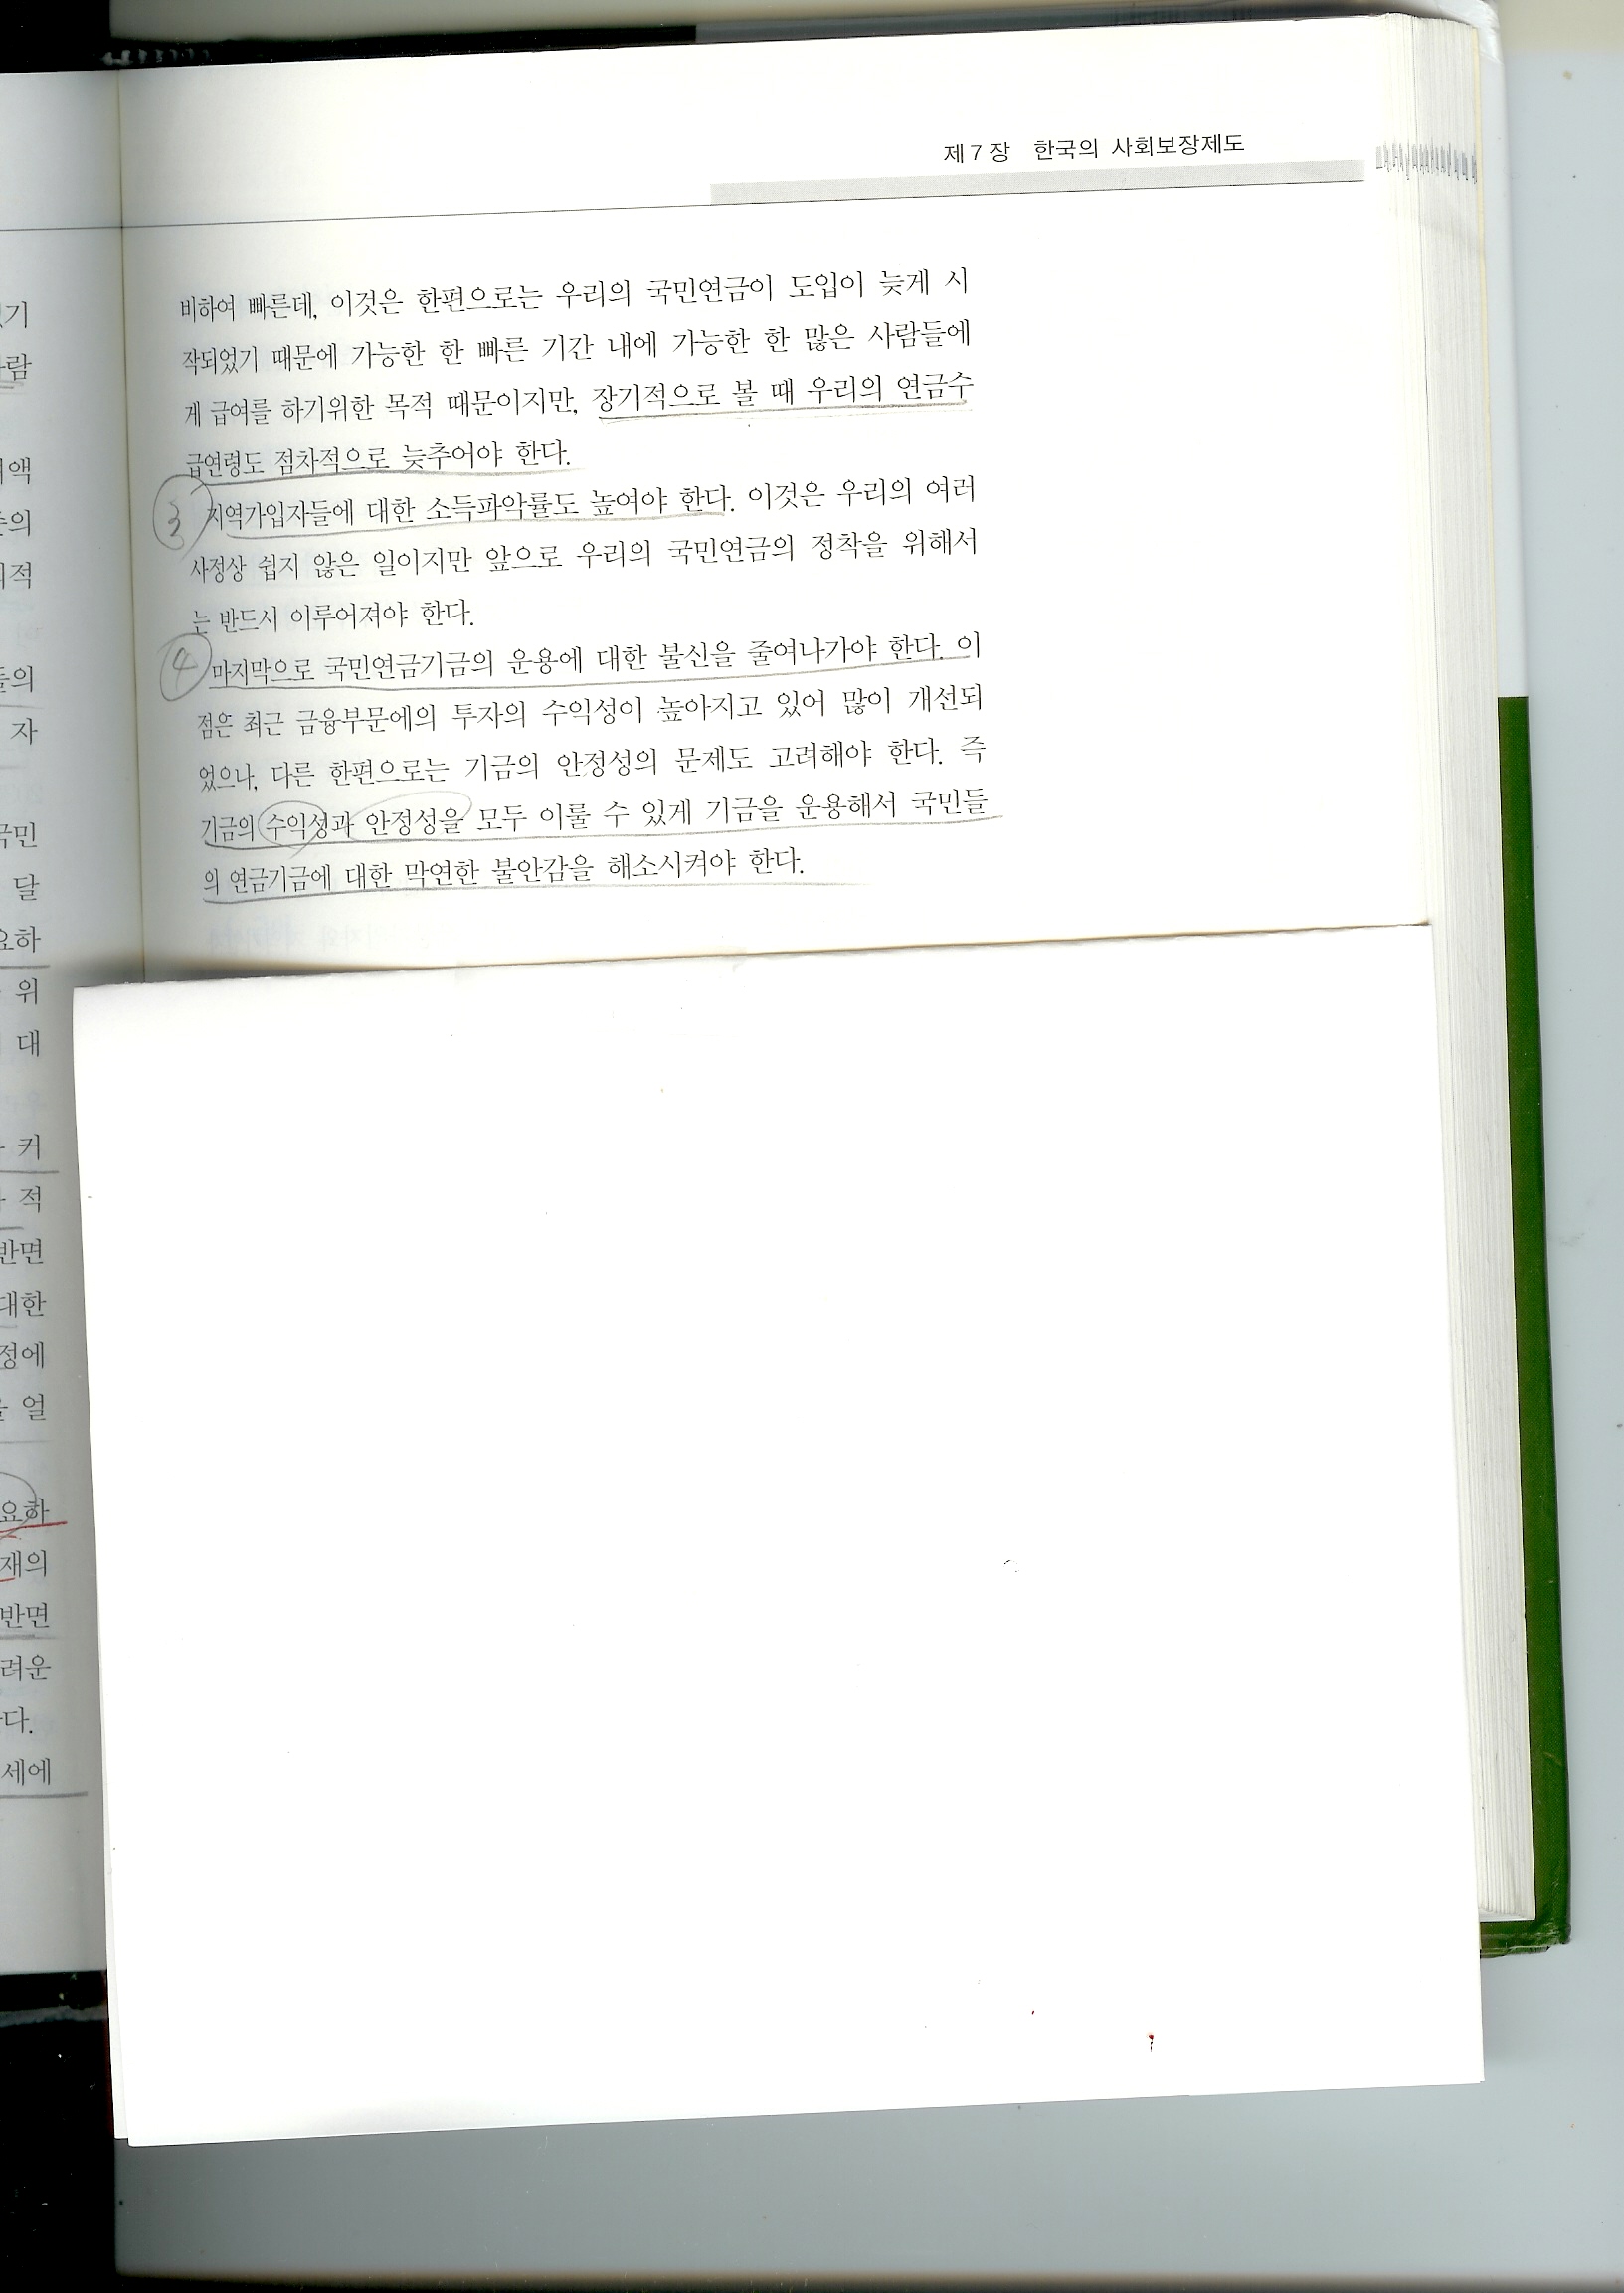 제 7 장 한국의 사회보장제도
비하여 빠른데, 이것은 한편으로는 우리의 국민연금이 도입이 늦게 시
작되었기 때문에 가능한 한 빠른 기간 내에 가능한 한 많은 사람들에
게 급여를 하기위한 목적 때문이지만, 장기적으로 볼 때 우리의 연금수
급연령도 점차적으로 늦추어야 한다.
③ 지역가입자들에 대한 소득파악률도 높여야 한다. 이것은 우리의 여러
사정상 쉽지 않은 일이지만 앞으로 우리의 국민연금의 정착을 위해서
는 반드시 이루어져야 한다.
④ 마지막으로 국민연금기금의 운용에 대한 불신을 줄여나가야 한다. 이
점은 최근 금융부문에의 투자의 수익성이 높아지고 있어 많이 개선되
었으나, 다른 한편으로는 기금의 안정성의 문제도 고려해야 한다. 즉
기금의 수익성과 안정성을 모두 이룰 수 있게 기금을 운용해서 국민들
의 연금기금에 대한 막연한 불안감을 해소시켜야 한다.
자
달
위
대
커
적
반면
대한
얼
반면